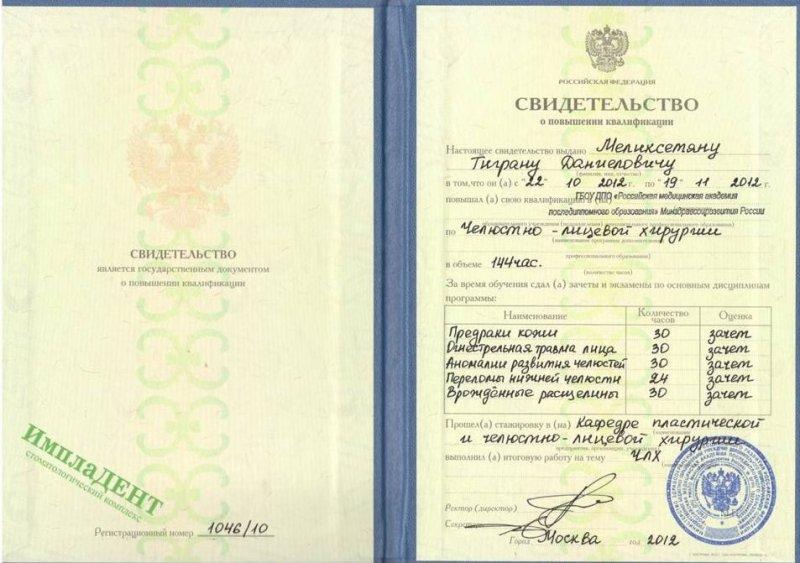 СВИДЕТЕЛЬСТВО
является государственным документом
о повышении квалификации
ИмплаДЕНТ
стоматологический комплекс
Регистрационный номер 1046/10
РОССИЙСКАЯ ФЕДЕРАЦИЯ
СВИДЕТЕЛЬСТВО
о повышении квалификации
Настоящее свидетельство выдано Меликсетяну
Тиграну Даниеловичу
(фамилия, имя, отчество)
в том,что он (а) с "22" 10 2012 г. по "19" 11 2012 г.
повышал (а) свою квалификацию в (на) ГБОУ ДПО «Российская медицинская академия
последипломного образования» Минздравсоцразвития России
по Челюстно-лицевой хирургии
(наименование программы дополнительного
профессионального образования)
в объеме 144час.
(количество часов)
За время обучения сдал (а) зачеты и экзамены по основным дисциплинам
программы:
Наименование Количество часов Оценка
Предраки кожи 30 зачет
Огнестрельная травма лица 30 зачет
Аномалии развития челюстей 30 зачет
Переломы нижней челюсти 24 зачет
Врождённые расщелины 30 зачет
Прошел(а) стажировку в (на) Кафедре пластической
и челюстно-лицевой хирургии
выполнил (а) итоговую работу на тему ЧЛХ
Ректор (директор)
Секретарь
Город Москва год 2012